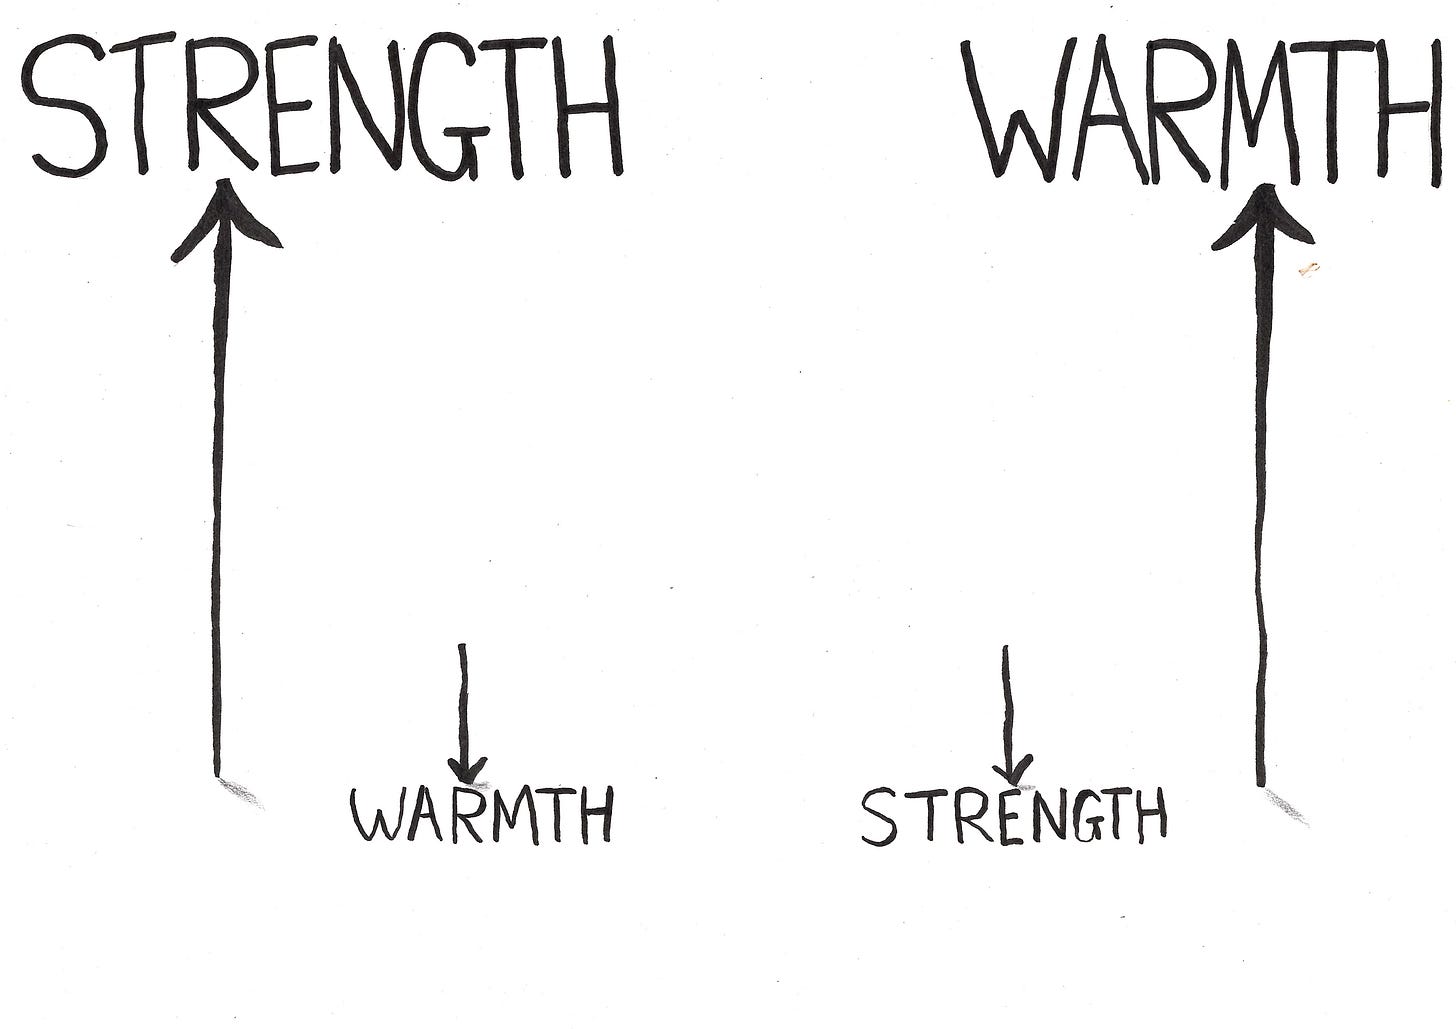 STRENGTH
WARMTH
WARMTH
STRENGTH